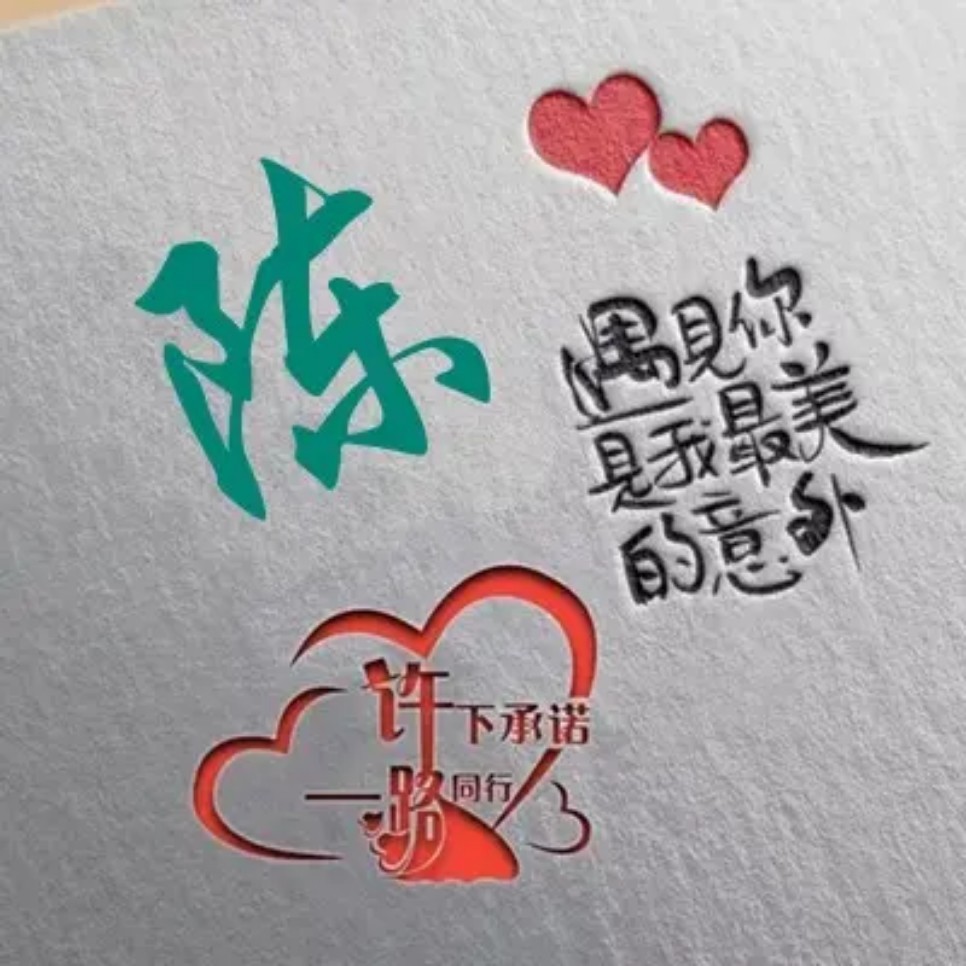 陈
遇見你
是我最美
的意外
许下承诺
一路同行